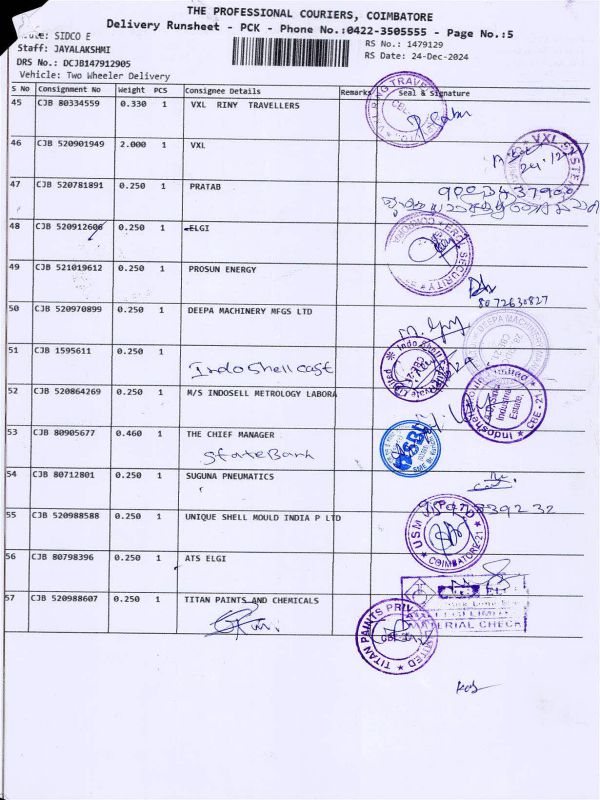 THE PROFESSIONAL COURIERS, COIMBATORE
Delivery Runsheet - PCK - Phone No.:0422-3505555 - Page No.:5
SIDCO E
RS No.: 1479129
Staff: JAYALAKSHMI
RS Date: 24-Dec-2024
DRS No.: DCJB147912905
Vehicle: Two Wheeler Delivery
S No Consignment No Weight PCS Consignee Details Remarks Seal & Signature
45 CJB 80334559 0.330 1 VXL RINY TRAVELLERS
46 CJB 520901949 2.000 1 VXL
VXL SYSTE
47 CJB 520781891 0.250 1 PRATAB
48 CJB 520912606 0.250 1 ELGI
SECURITY
49 CJB 521019612 0.250 1 PROSUN ENERGY
8072630827
50 CJB 520970899 0.250 1 DEEPA MACHINERY MFGS LTD
DEEPA MACHINERY
51 CJB 1595611 0.250 1
Indo Shell cast
Indo Shell
52 CJB 520864269 0.250 1 M/S INDOSELL METROLOGY LABORA
Industrial
Estate,
CBE - 21
53 CJB 80905677 0.460 1 THE CHIEF MANAGER
State Bank
54 CJB 80712801 0.250 1 SUGUNA PNEUMATICS
55 CJB 520988588 0.250 1 UNIQUE SHELL MOULD INDIA P LTD
USM
COIMBATORE-21
56 CJB 80798396 0.250 1 ATS ELGI
MATERIAL CHECK
57 CJB 520988607 0.250 1 TITAN PAINTS AND CHEMICALS
TITAN PAINTS PRIV